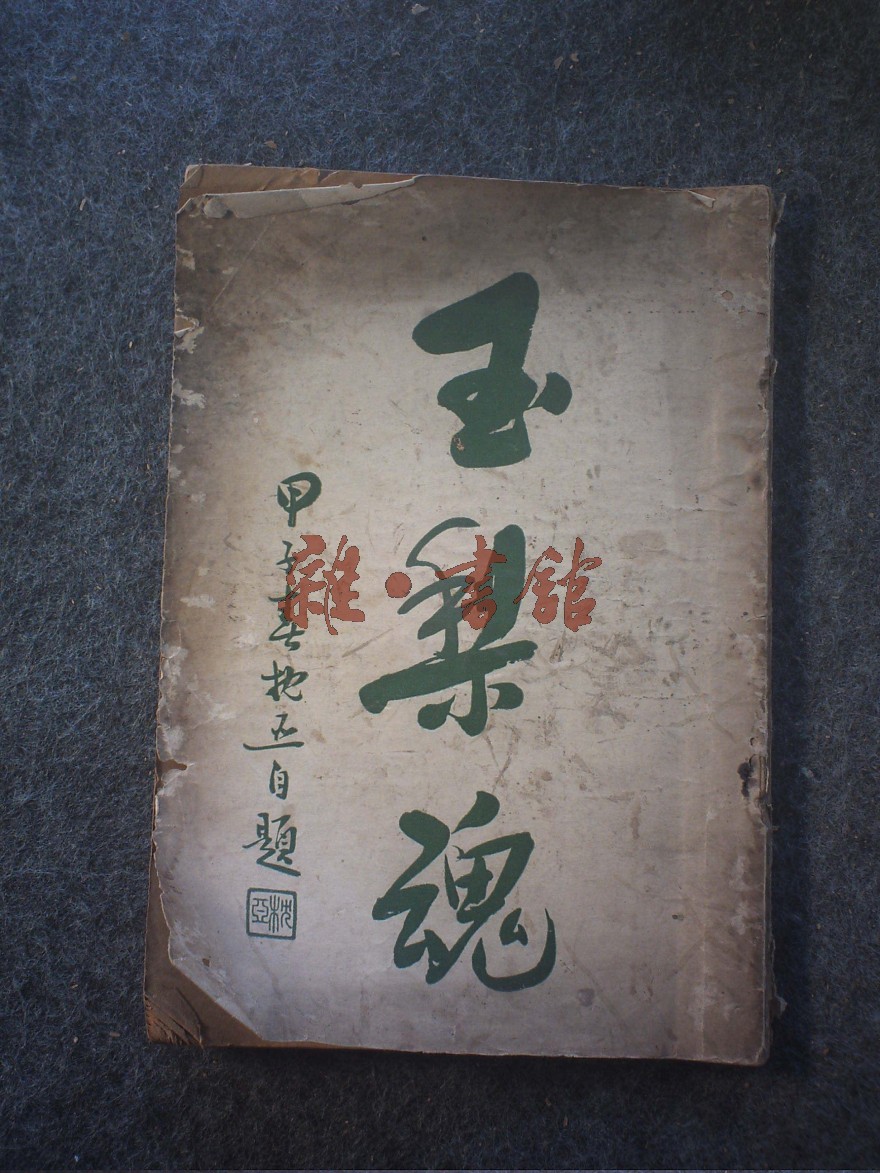 玉梨魂
甲子春枕亞自題
枕亞
雜·書館